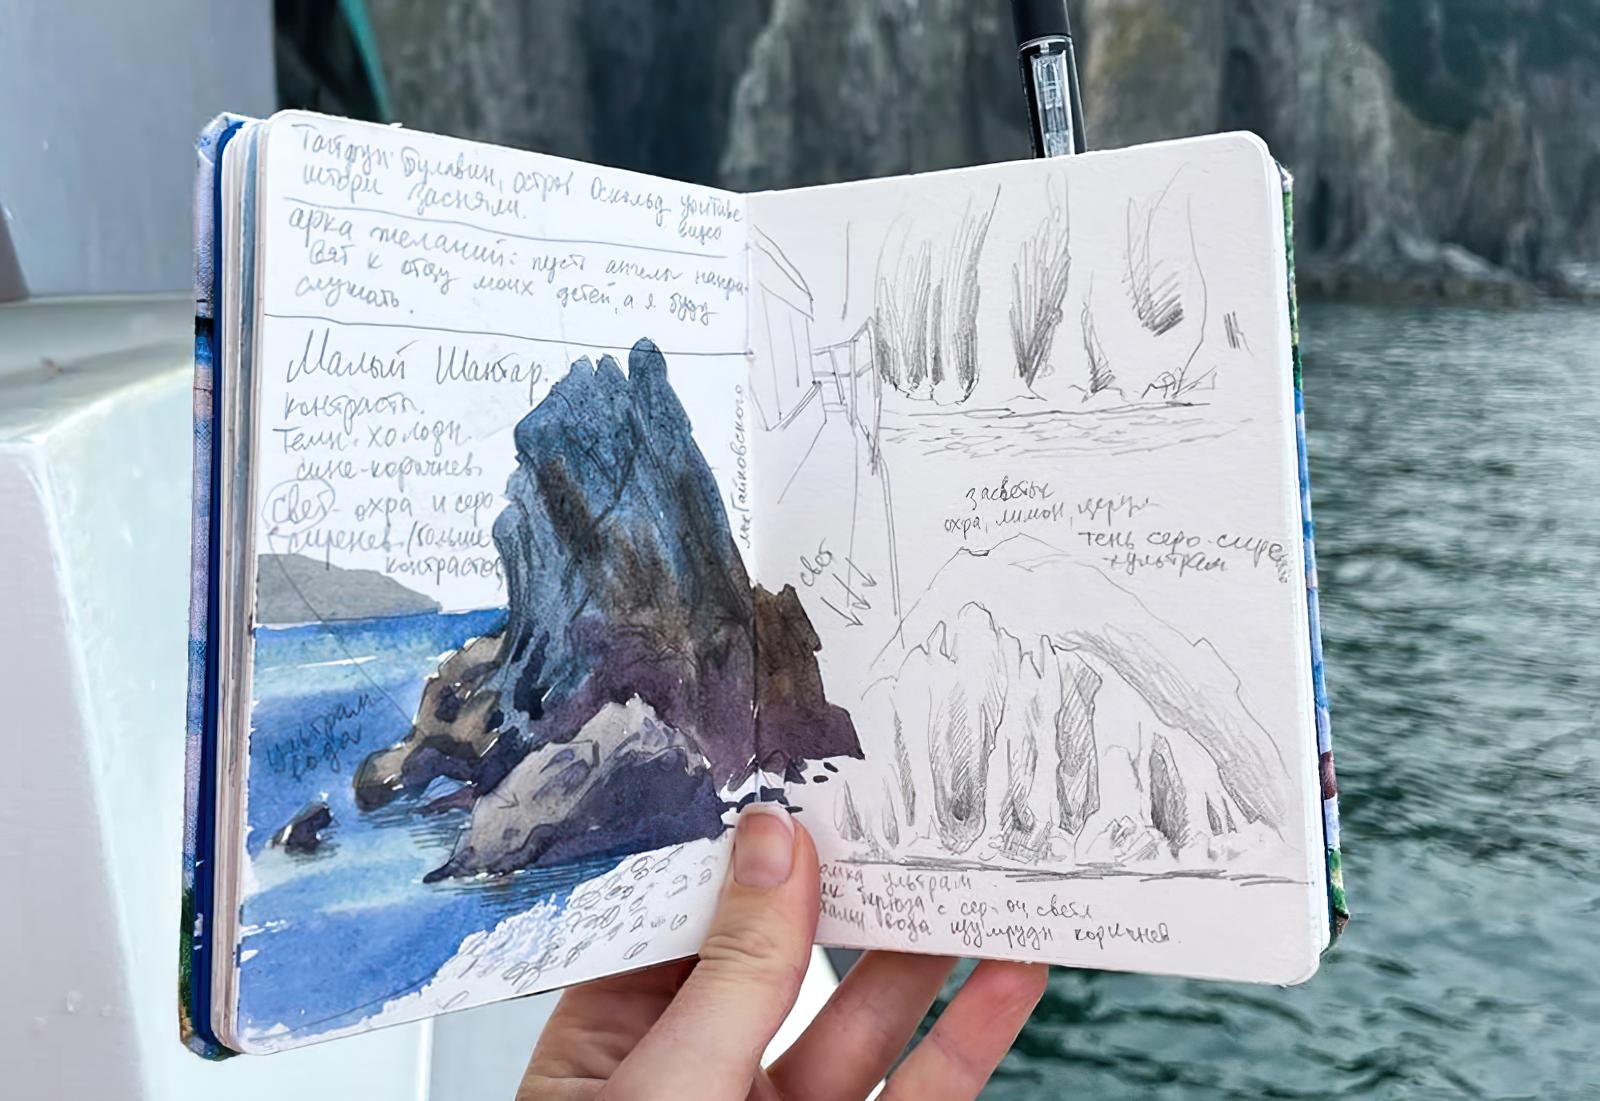 Тайфун Булавин, остров Оскольд youtube
шторм засняли. видео
арка желаний: пусть ангелы напра-
вят к отцу моих детей, а я буду
слушать.
Малый Шантар.
контрасты.
темн. холодн.
сине-коричнев
свет - охра и серо
сиренев (больше
контрастов
ультрам
вода
свет
засветы
охра, лимон, церул
тень серо-сирен
+ультрам
ультрам
бирюза с сер-ох, светл
вода изумрудн коричнев.